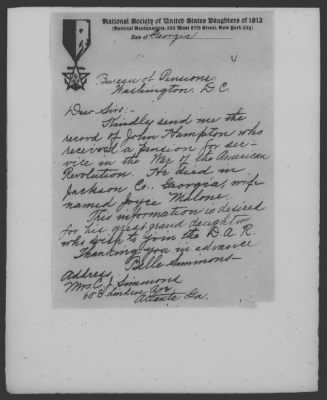 National Society of United States Daughters of 1812
(National Headquarters, 332 West 87th Street, New York City)
State of Georgia
Bureau of Pensions
Washington, D.C.
Dear Sirs:-
Kindly send me the
record of John Hampton who
received a pension for ser-
vice in the War of the American
Revolution. He died in
Jackson Co., Georgia, wife
named Joyce Malone.
This information is desired
for his great grand daughter
who wish to join the D.A.R.
Thanking you in advance
Belle Simmons
Address
Mrs C. J. Simmons
Ave
Atlanta Ga.